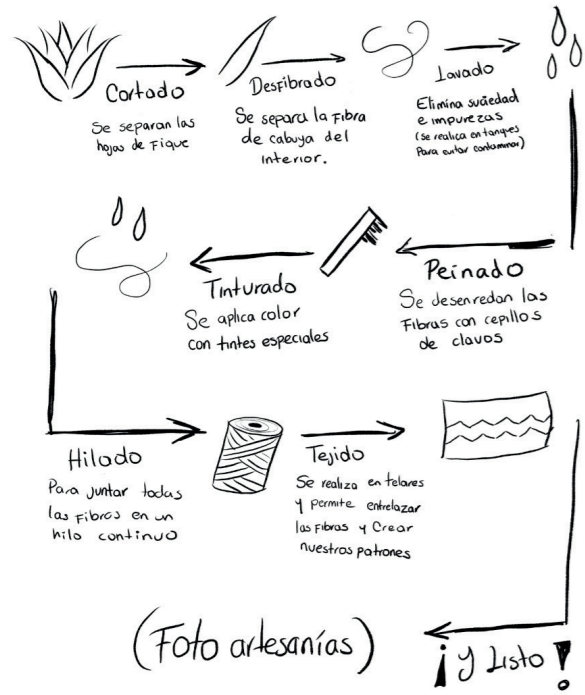 Cortado
Se separan las
hojas de Fique
Desfibrado
Se separa la Fibra
de cabuya del
Interior.
Lavado
Elimina suciedad
e impurezas
(se realiza en tanques
Para evitar contaminar)
Peinado
Se desenredan las
Fibras con cepillos
de clavos
Tinturado
Se aplica color
con tintes especiales
Hilado
Para juntar todas
las Fibras en un
hilo continuo
Tejido
Se realiza en telares
y permite entrelazar
las Fibras y Crear
nuestros patrones
¡Y Listo!
(Foto artesanías)